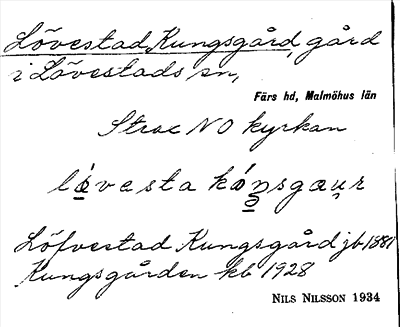 Lövestad Kungsgård, gård
i Lövestads sn,
Färs hd, Malmöhus län
Strax NO kyrkan
lǿvesta kóŋsgæu̯r
Löfvestad Kungsgård jb 1881
Kungsgården kb 1928
NILS NILSSON 1934